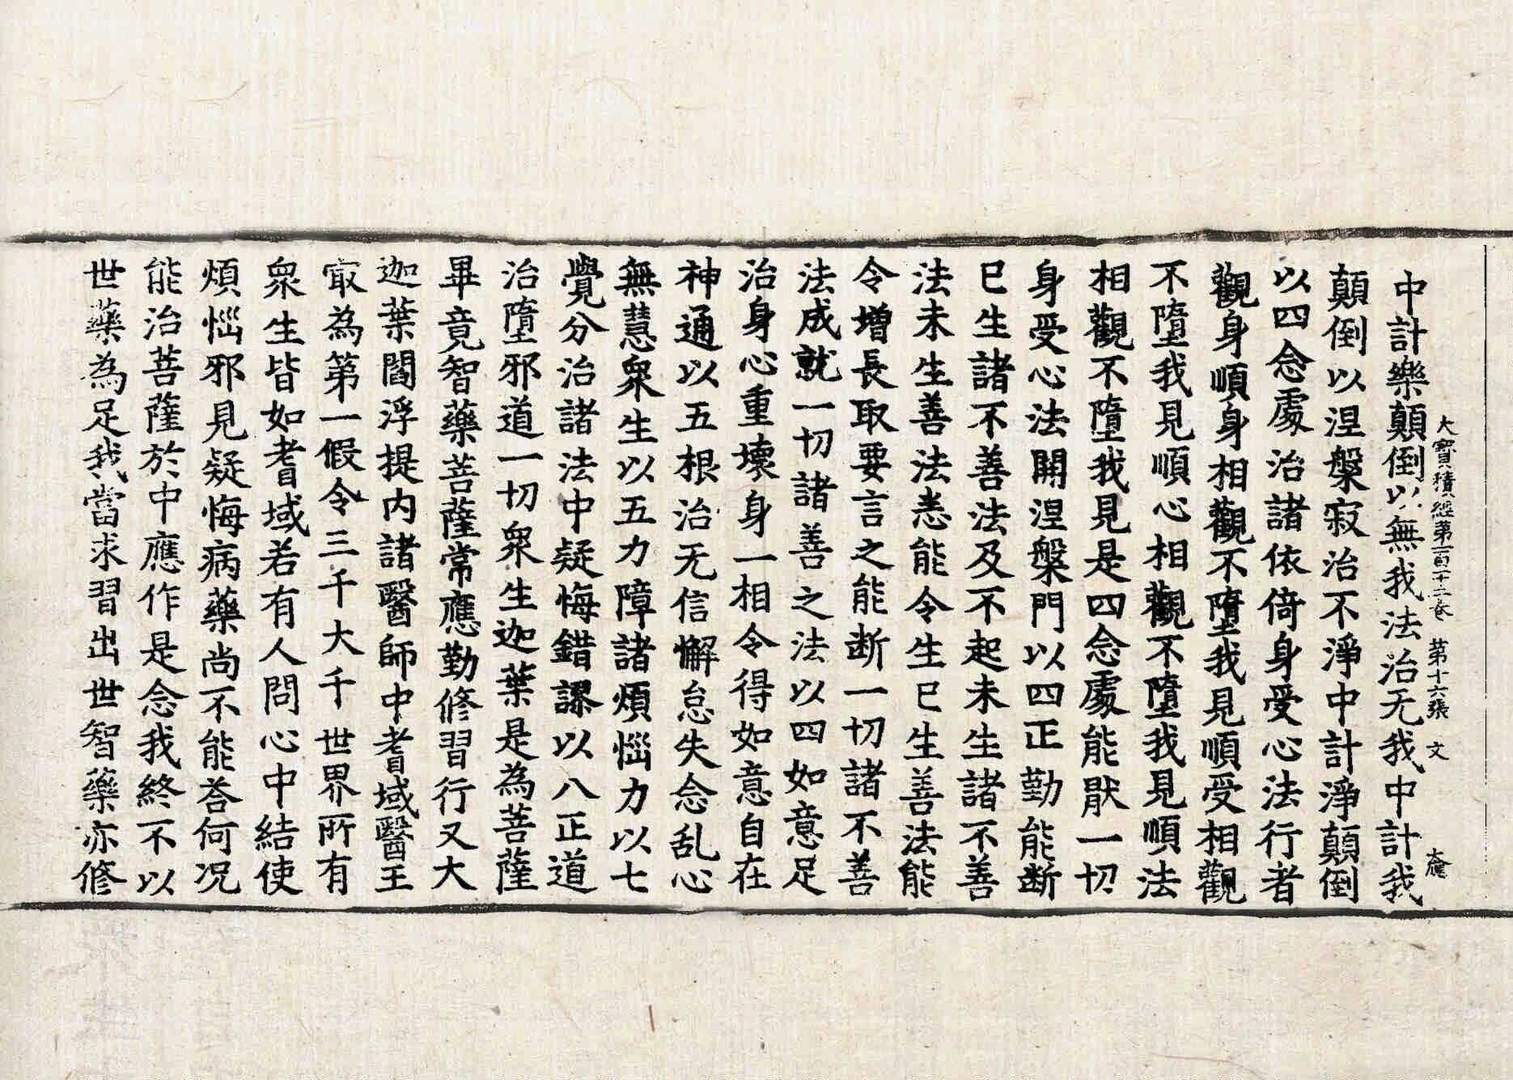 大寶積經第一百一十二卷 第十六張 文
中計樂顛倒以無我法治无我中計我
顛倒以涅槃寂治不淨中計淨顛倒
以四念處治諸依倚身受心法行者
觀身順身相觀不墮我見順受相觀
不墮我見順心相觀不墮我見順法
相觀不墮我見是四念處能猒一切
身受心法開涅槃門以四正勤能断
已生諸不善法及不起未生諸不善
法未生善法悉能令生已生善法能
令增長取要言之能断一切諸不善
法成就一切諸善之法以四如意足
治身心重壞身一相令得如意自在
神通以五根治无信懈怠失念乱心
無慧眾生以五力障諸煩惱力以七
覺分治諸法中疑悔錯謬以八正道
治墮邪道一切眾生迦葉是為菩薩
畢竟智藥菩薩常應勤修習行又大
迦葉閻浮提内諸醫師中耆域醫王
㝡為第一假令三千大千世界所有
眾生皆如耆域若有人問心中結使
煩惱邪見疑悔病藥尚不能荅何况
能治菩薩於中應作是念我終不以
世藥為足我當求習出世智藥亦修